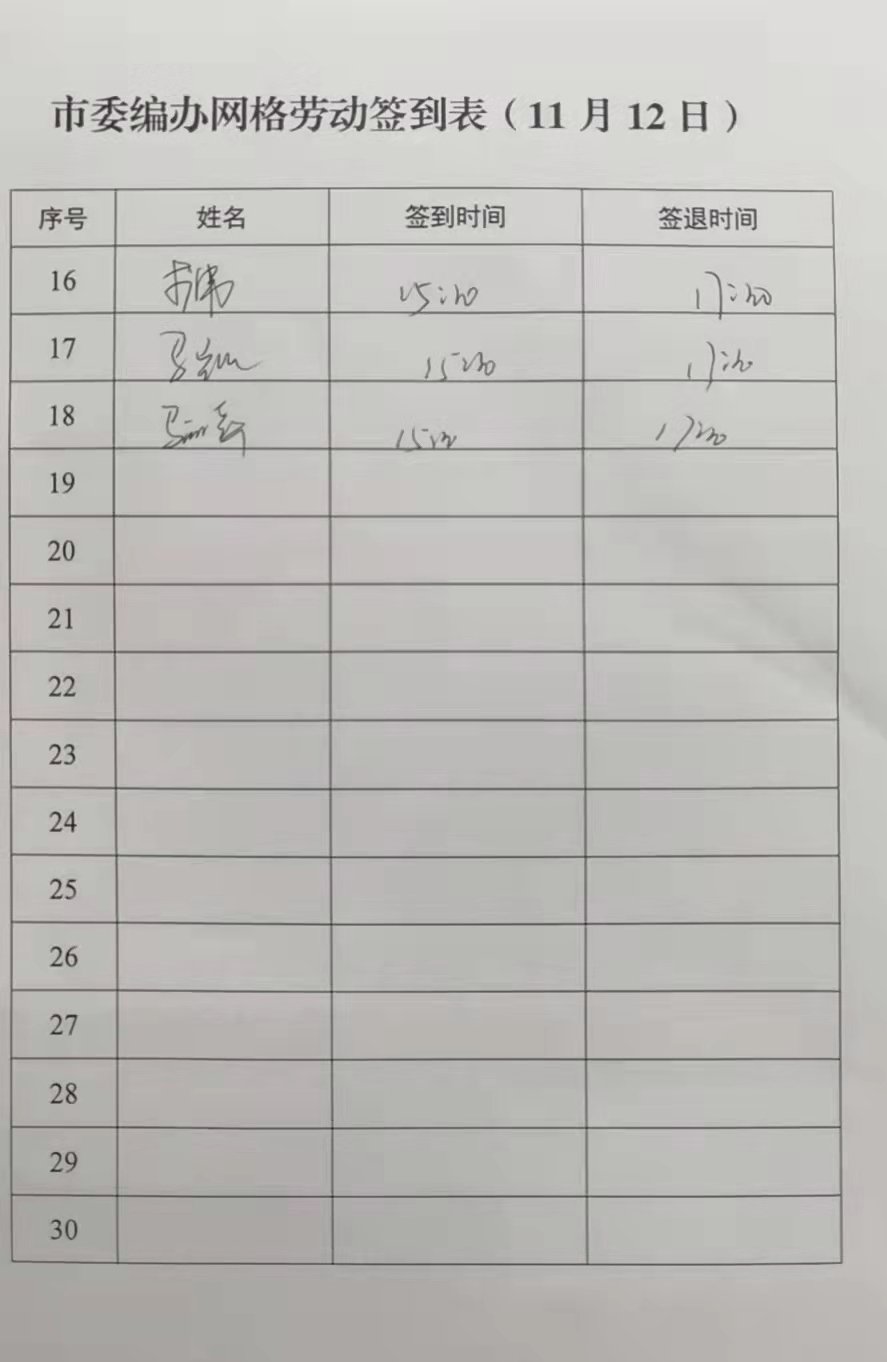 市委编办网格劳动签到表（11月12日）
序号 姓名 签到时间 签退时间
16 15:30 17:30
17 15:30 17:30
18 15:30 17:30
19
20
21
22
23
24
25
26
27
28
29
30